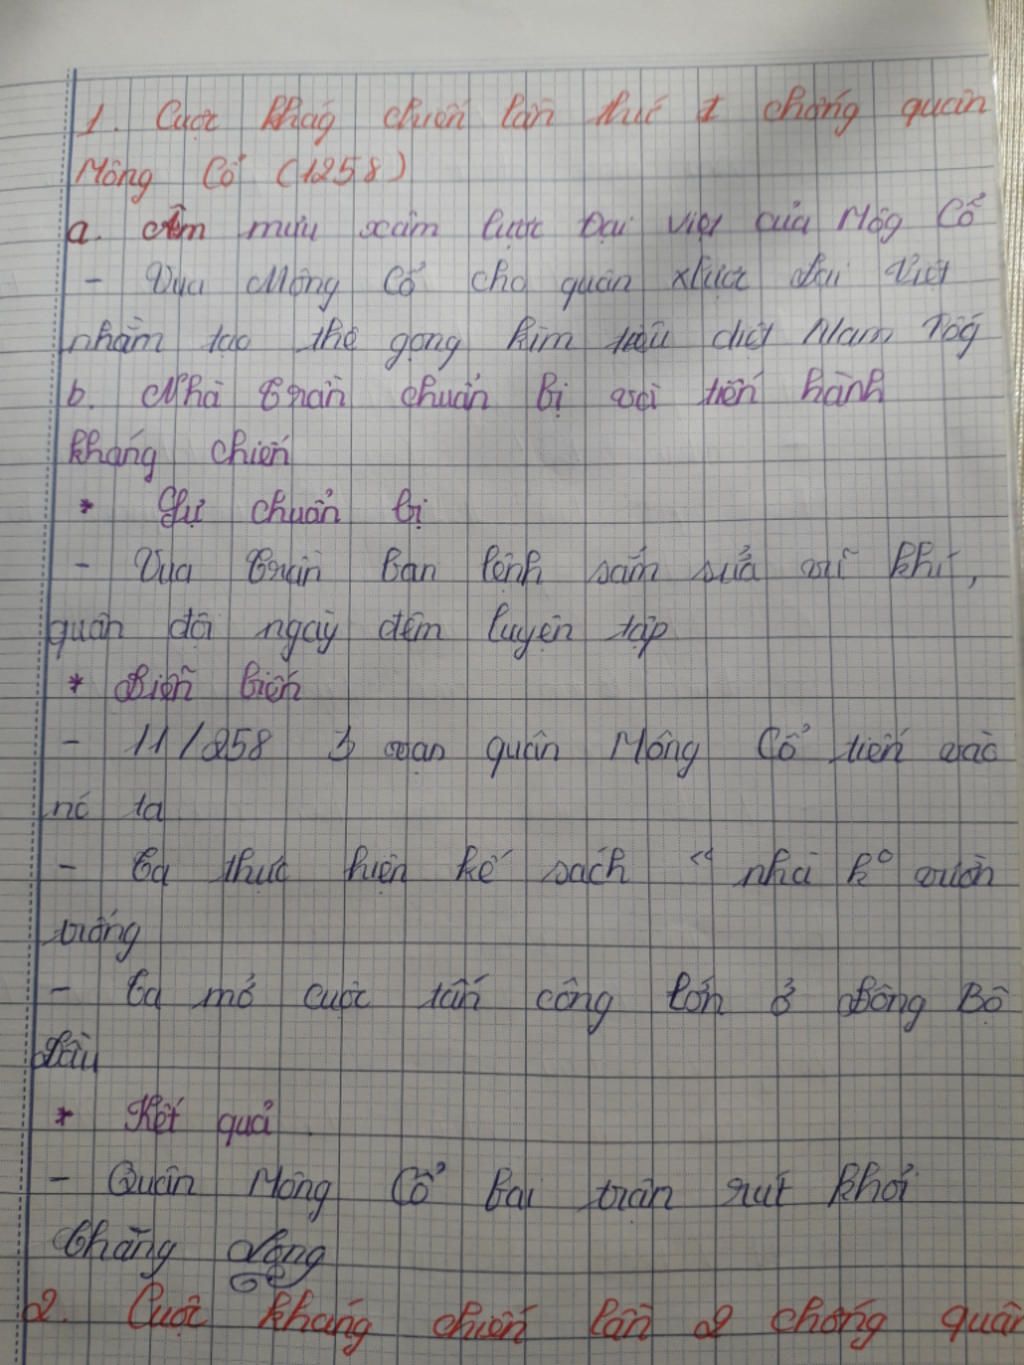 1. Cuộc kháng chiến lần thứ 1 chống quân
Mông Cổ (1258)
a. Âm mưu xâm lược Đại Việt của Môg Cổ
- Vua Mông Cổ cho quân xlược đại Việt
nhằm tạo thế gọng kìm tiêu diệt Nam Tốg
b. Nhà Trần chuẩn bị và tiến hành
kháng chiến
* Sự chuẩn bị
- Vua Trần ban lệnh sắm sửa vũ khí,
quân đội ngày đêm luyện tập
* Diễn biến
- 11/258 3 vạn quân Mông Cổ tiến vào
nc ta
- Ta thực hiện kế sách " nhà k° vườn
trống
- Ta mở cuộc tấn công lớn ở Đông Bộ
Đầu
* Kết quả
- Quân Mông Cổ bại trận rút khỏi
Thăng Long
2. Cuộc kháng chiến lần 2 chống quân